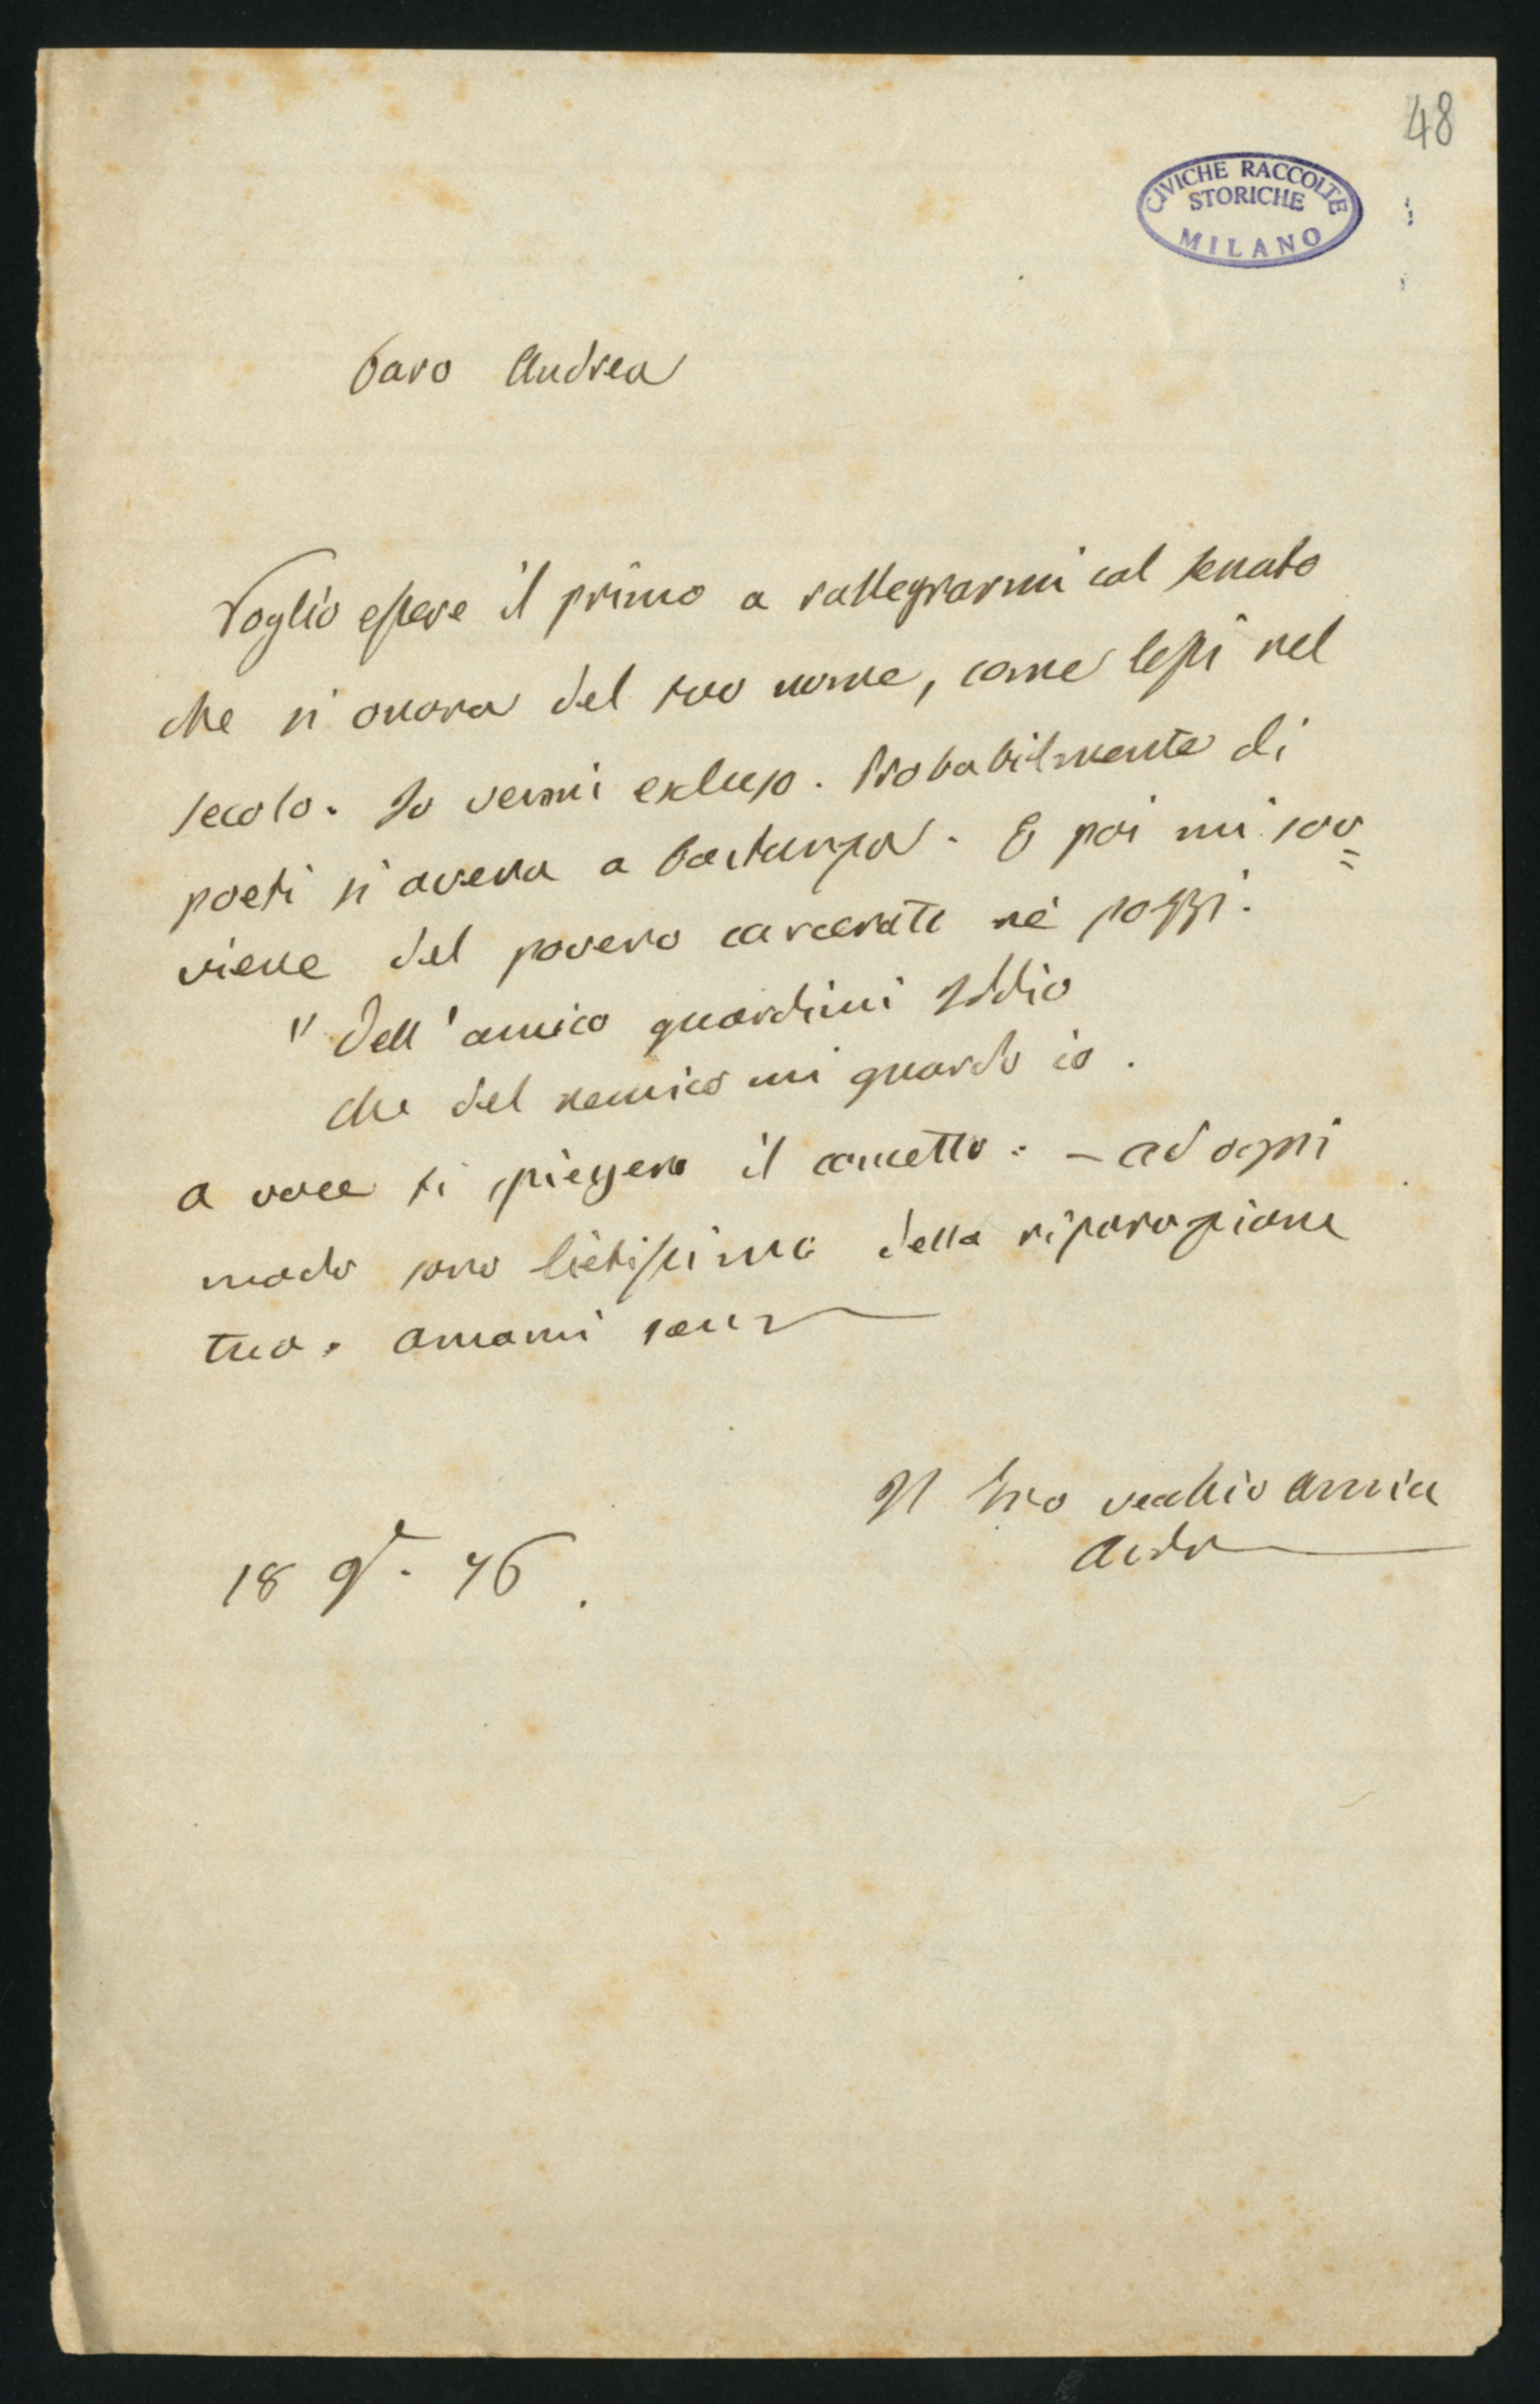 48
CIVICHE RACCOLTE
STORICHE
MILANO
Caro Andrea
Voglio essere il primo a rallegrarmi col senato
che si onora del tuo nome, come lessi nel
secolo. Io venni escluso. Probabilmente di
poeti si aveva a bastanza. E poi mi sov=
viene del povero carcerato nè pozzi.
"Dell'amico guardimi Iddio
che del nemico mi guardo io.
a voce ti spiegero il concetto. - ad ogni
modo sono lietissimo della riparazione
tua. amami
Il tuo vecchio amico
Aldo
18 9e. 76.